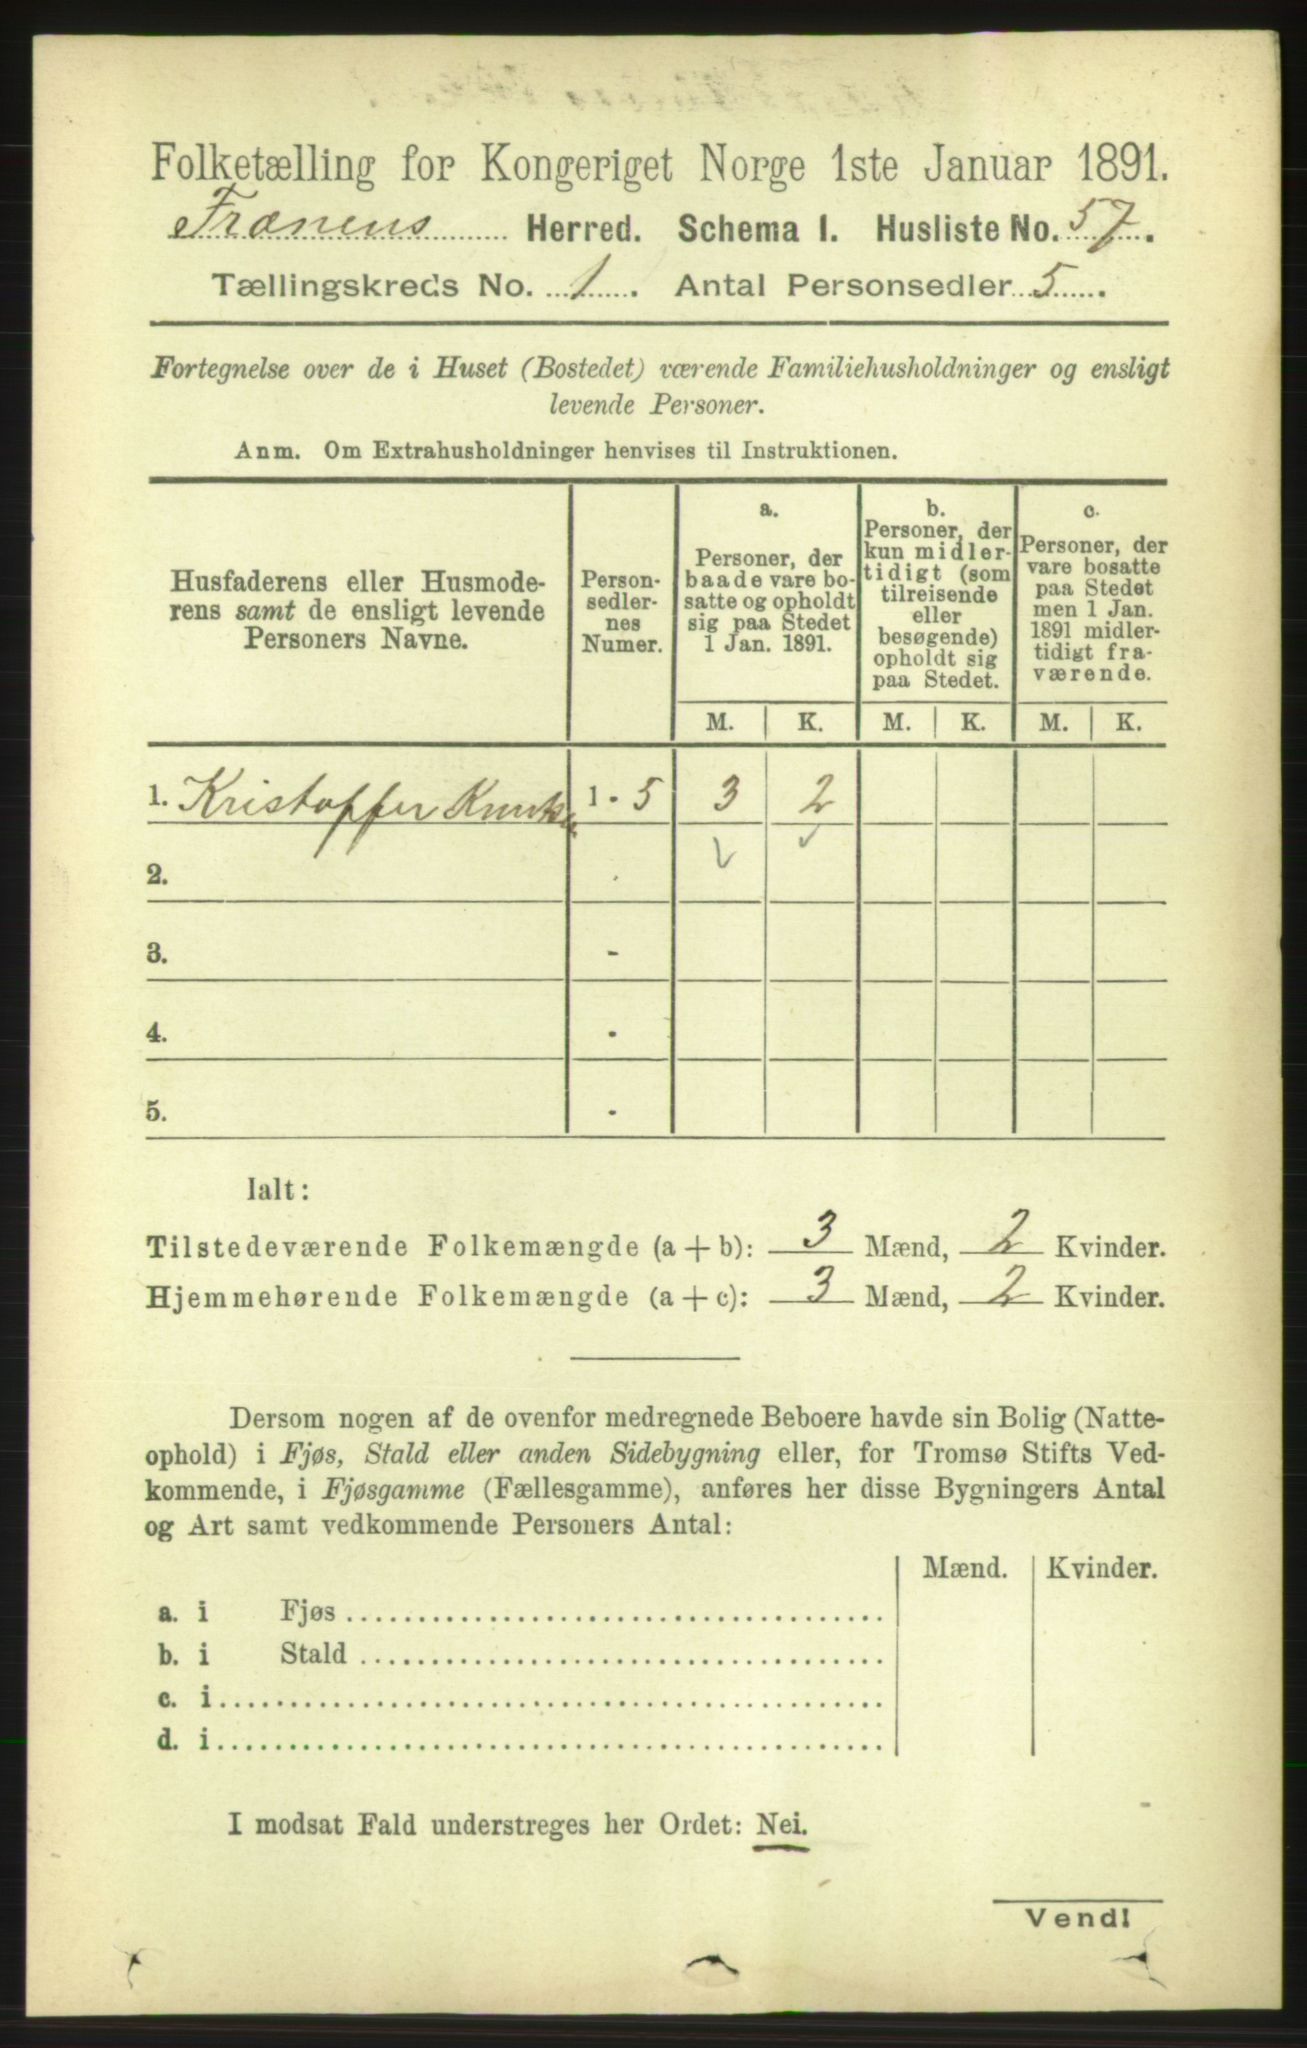 Folketælling for Kongeriget Norge 1ste Januar 1891.
Frænens Herred. Schema I. Husliste No. 57.
Tællingskreds No. 1. Antal Personsedler 5.
Fortegnelse over de i Huset (Bostedet) værende Familiehusholdninger og ensligt
levende Personer.
Anm. Om Extrahusholdninger henvises til Instruktionen.
Husfaderens eller Husmode-
rens samt de ensligt levende
Personers Navne.
Person-
sedler-
nes
Numer.
a.
Personer, der
baade vare bo-
satte og opholdt
sig paa Stedet
1 Jan. 1891.
b.
Personer, der
kun midler-
tidigt (som
tilreisende
eller
besøgende)
opholdt sig
paa Stedet.
c.
Personer, der
vare bosatte
paa Stedet
men 1 Jan.
1891 midler-
tidigt fra-
værende.
M. K. M. K. M. K.
1. Kristoffer 1 - 5 3 2
2.
3. -
4. -
5. -
Ialt:
Tilstedeværende Folkemængde (a + b): 3 Mænd, 2 Kvinder.
Hjemmehørende Folkemængde (a + c): 3 Mænd, 2 Kvinder.
Dersom nogen af de ovenfor medregnede Beboere havde sin Bolig (Natte-
ophold) i Fjøs, Stald eller anden Sidebygning eller, for Tromsø Stifts Ved-
kommende, i Fjøsgamme (Fællesgamme), anføres her disse Bygningers Antal
og Art samt vedkommende Personers Antal:
Mænd. Kvinder.
a. i Fjøs
b. i Stald
c. i
d. i
I modsat Fald understreges her Ordet: Nei.
Vend!